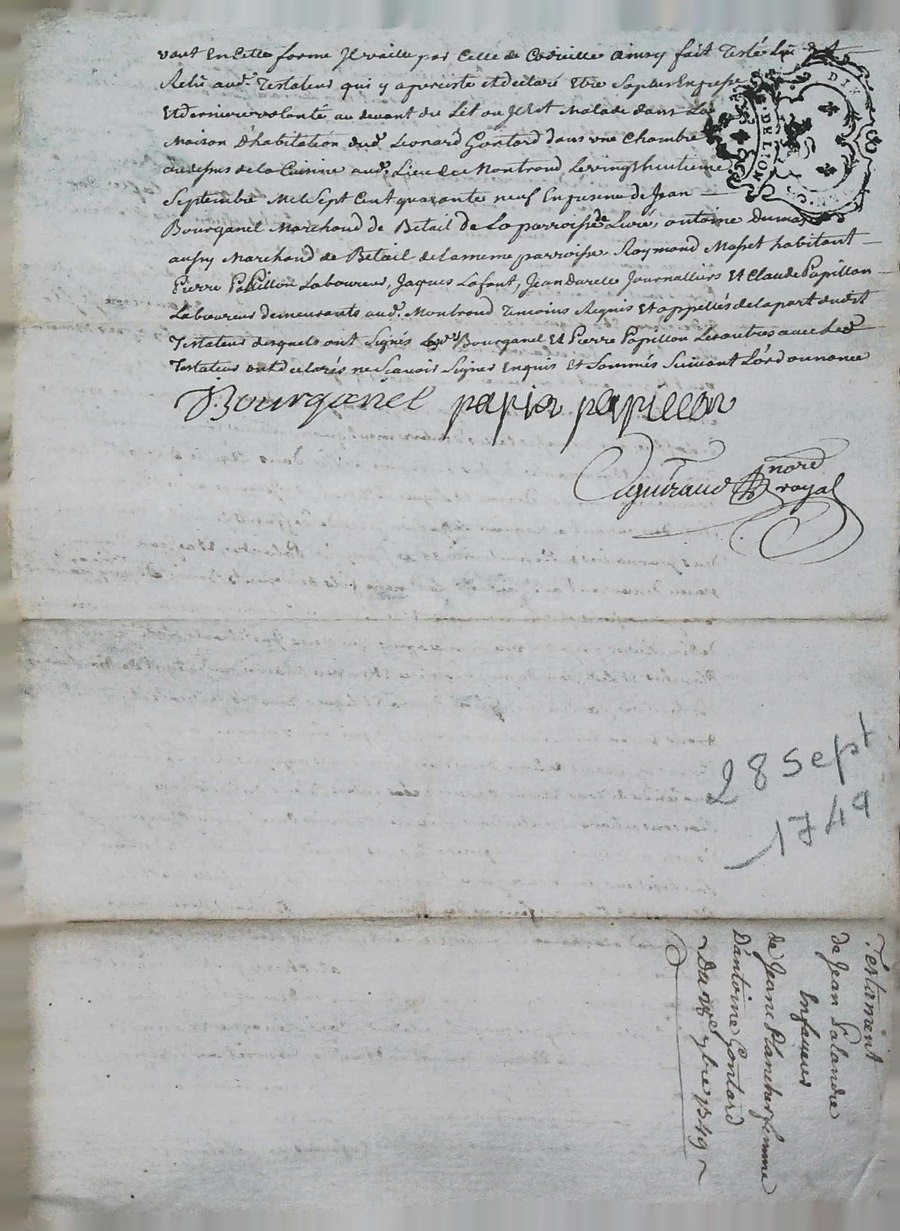 vant En cette forme Il vaille par Celle de Codicille ainsy fait Testé Lû Et
Relû aud. Testateur qui y a persisté Et declaré Etre Sa plus Expresse
Et derniere volonté au devant du Lit ou Il Est Malade dans La
Maison D'habitation dud. Leonard Gontard dans une Chambre
au dessus de la Cuisine aud. Lieu de Montroud Le vingt huitieme
Septembre Mil Sept Cent quarante neuf En presence de Jean
Bourganel Marchand de Betail de La parroisse de Livré, antoine
aussy Marchand de Betail de la meme parroisse Raymond Masset habitant
Pierre Papillon Laboureur, Jaques Lafont, Jean Journalliers Et Claude Papillon
Laboureur demeurants aud. Montroud Temoins Requis Et appellés de la part dudit
Testateur desquels ont Signés Bourganel Et Pierre Papillon Les autres avec Led.
Testateur ont declarés ne Scavoir Signer Enquis Et Sommés Suivant L'ordonnance
DIX
DE LION
Bourganel papillon
guiraud nore
royal
28 sept
1749
Testament
de Jean Lalandre
En faveur
de Jeane Planchar femme
D'antoine Gontard
Du 28e 7bre 1749